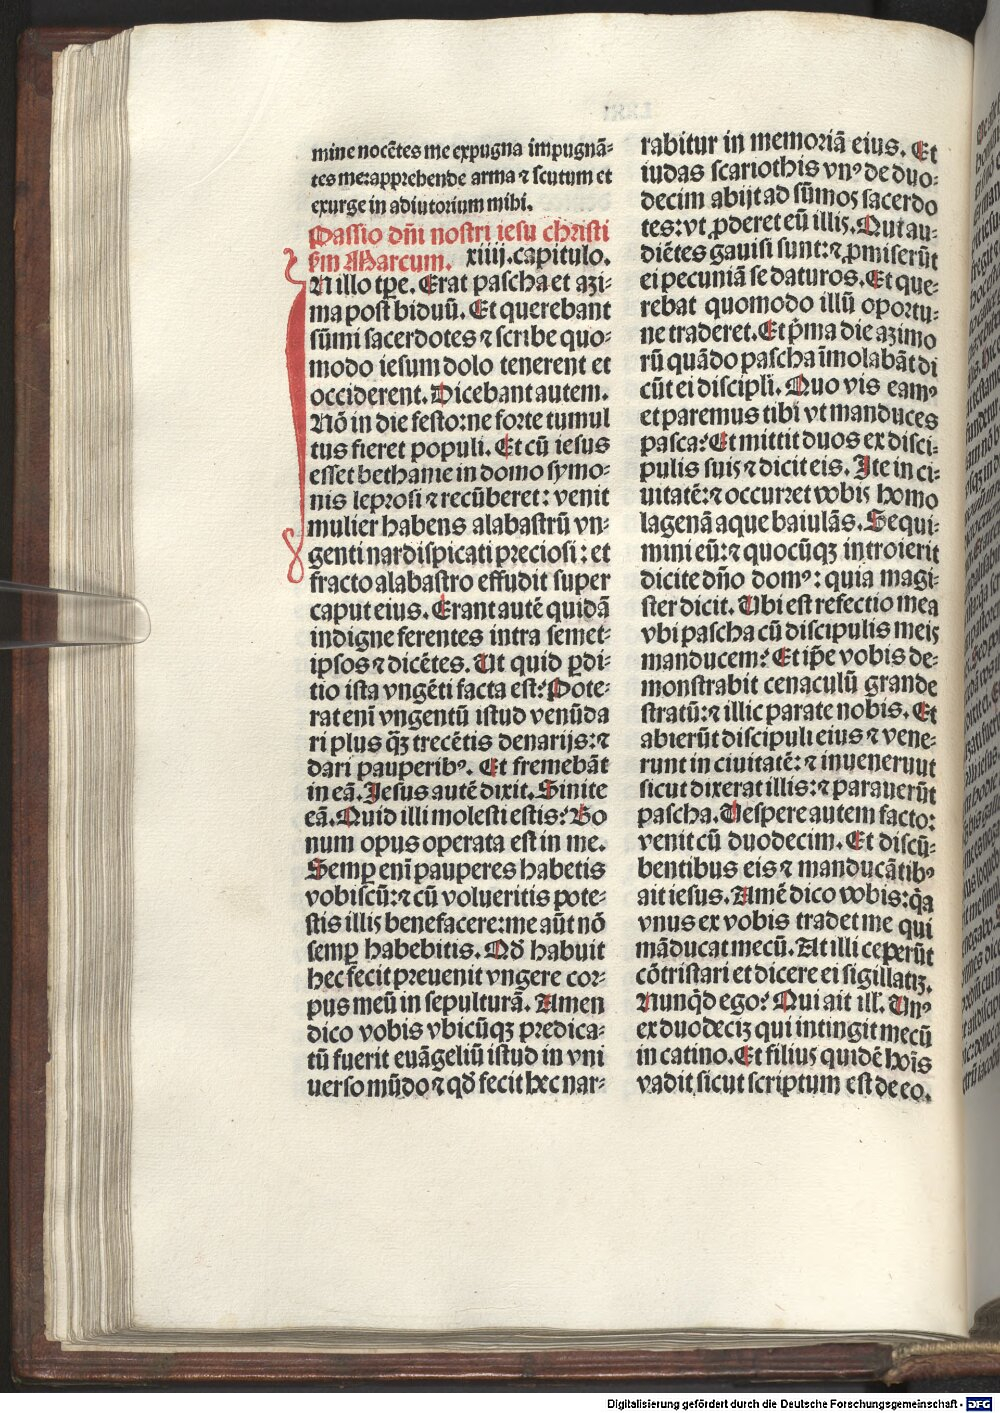 mine nocētes me expugna impugnā⸗
tes me:apprehende arma ⁊ scutum et
exurge in adiutorium mihi.
Passio dñi nostri iesu christi
ẜm Marcum. xiiij.capitulo.
IN illo tꝑe. Erat pascha et azi⸗
ma post biduū. Et querebant
sūmi sacerdotes ⁊ scribe quo⸗
modo iesum dolo tenerent et
occiderent. Dicebant autem.
Nō in die festo:ne forte tumul
tus fieret populi. Et cū iesus
esset bethanie in domo symo⸗
nis leprosi ⁊ recūberet: venit
mulier habens alabastrū vn⸗
genti nardispicati preciosi: et
fracto alabastro effudit super
caput eius. Erant autē quidā
indigne ferentes intra semet⸗
ipsos ⁊ dicētes. Ut quid ꝑdi⸗
tio ista vngēti facta est? Pote⸗
rat enī vngentū istud venūda
ri plus q̄ꝫ trecētis denarijs:⁊
dari pauperibꝰ. Et fremebāt
in eā. Jesus autē dixit. Sinite
eā. Quid illi molesti estis? Bo
num opus operata est in me.
Semꝑ enī pauperes habetis
vobiscū:⁊ cū volueritis pote⸗
stis illis benefacere:me aūt nō
semꝑ habebitis. Qd̄ habuit
hec fecit preuenit vngere cor⸗
pus meū in sepulturā. Amen
dico vobis vbicūqꝫ predica⸗
tū fuerit euāgeliū istud in vni
uerso mūdo ⁊ qd̄ fecit hec nar⸗
rabitur in memoriā eius. Et
iudas scariothis vnꝰ de duo⸗
decim abijt ad sūmos sacerdo
tes:vt ꝓderet eū illis. Qui au⸗
diētes gauisi sunt:⁊ ꝓmiserūt
ei pecuniā se daturos. Et que⸗
rebat quomodo illū oportu⸗
ne traderet. Et p̄ma die azimo
rū quādo pascha īmolabāt di
cūt ei discipli. Quo vis eamꝰ
et paremus tibi vt manduces
pasca? Et mittit duos ex disci⸗
pulis suis ⁊ dicit eis. Ite in ci⸗
uitatē:⁊ occurret vobis homo
lagenā aque baiulās. Sequi⸗
mini eū:⁊ quocūqꝫ introierit
dicite dño domꝰ: quia magi⸗
ster dicit. Ubi est refectio mea
vbi pascha cū discipulis meis
manducem? Et ip̄e vobis de⸗
monstrabit cenaculū grande
stratū:⁊ illic parate nobis. Et
abierūt discipuli eius ⁊ vene⸗
runt in ciuitatē: ⁊ inuenerunt
sicut dixerat illis:⁊ parauerūt
pascha. Uespere autem facto:
venit cū duodecim. Et discū⸗
bentibus eis ⁊ manducātibꝰ
ait iesus. Amē dico vobis:q̄a
vnus ex vobis tradet me qui
māducat mecū. At illi ceperūt
cōtristari et dicere ei sigillatiꝫ.
Nunqd̄ ego? Qui ait ill. Unꝰ
ex duodeciꝫ qui intingit mecū
in catino. Et filius quidē hoīs
vadit sicut scriptum est de eo.
Digitalisierung gefördert durch die Deutsche Forschungsgemeinschaft - DFG